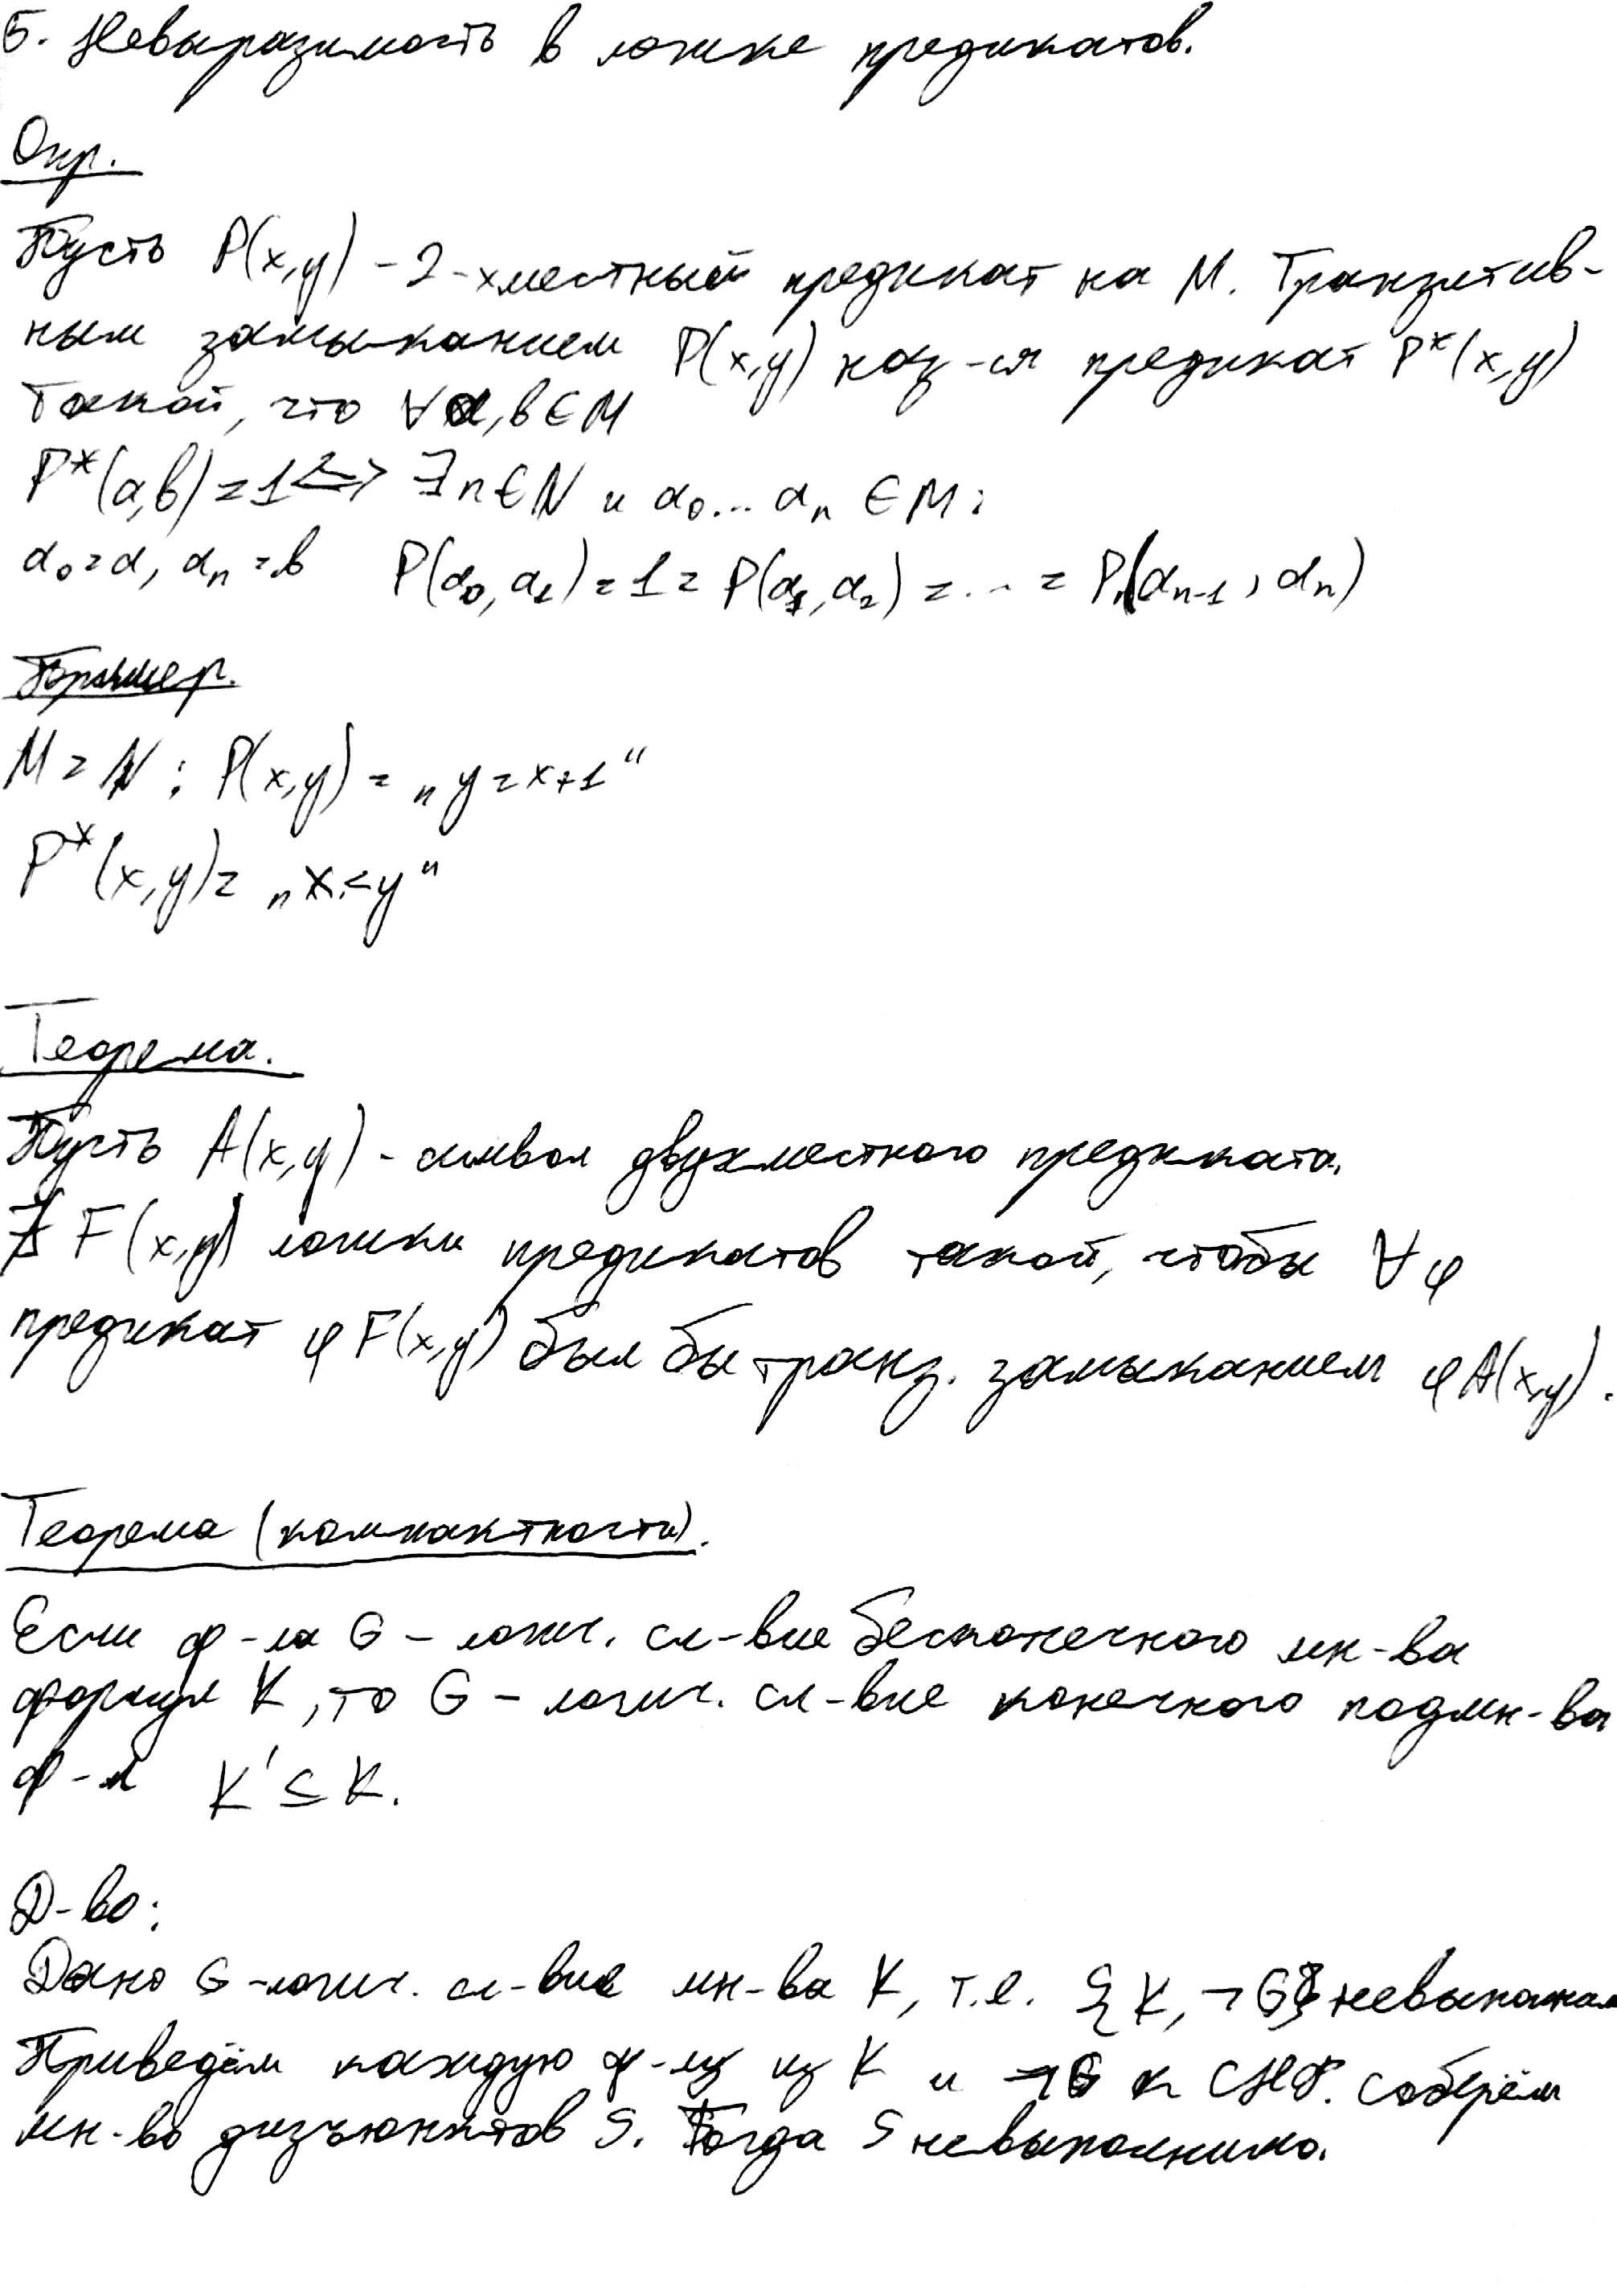 5. Невыразимость в логике предикатов.
Опр.
Пусть P(x,y) - 2-хместный предикат на M. Транзитив-
ным замыканием P(x,y) наз-ся предикат P*(x,y)
такой, что ∀ a, b ∈ M
P*(a,b) = 1 <=> ∃ n ∈ N и a₀... aₙ ∈ M:
a₀ = a, aₙ = b P(a₀, a₁) = 1 = P(a₁, a₂) = ... = P(aₙ₋₁, aₙ)
Пример.
M = N : P(x,y) = „y = x+1“
P*(x,y) = „x < y“
Теорема.
Пусть A(x,y) - символ двухместного предиката.
∄ F(x,y) логики предикатов такой, чтобы ∀ φ
предикат φ F(x,y) был бы транз. замыканием φ A(x,y).
Теорема (компактности).
Если ф-ла G - логич. сл-вие бесконечного мн-ва
формул K, то G - логич. сл-вие конечного подмн-ва
ф-л K' ⊆ K.
Д-во:
Дано G - логич. сл-вие мн-ва K, т.е. {K, ¬G} невыполним
Приведём каждую ф-лу из K и ¬G к СНФ. Соберём
мн-во дизъюнктов S. Тогда S невыполнимо.